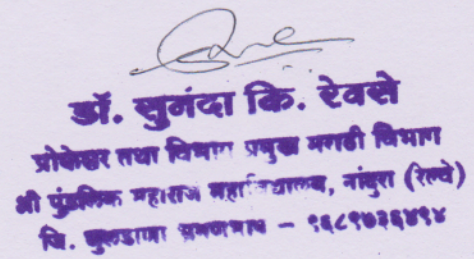 डॉ. सुनंदा कि. रेवसे
प्रोफेसर तथा विभाग प्रमुख मराठी विभाग
श्री पुंडलिक महाराज महाविद्यालय, नांदुरा (रेल्वे)
जि. बुलडाणा भ्रमणभाष - ९६८९७३६४९४